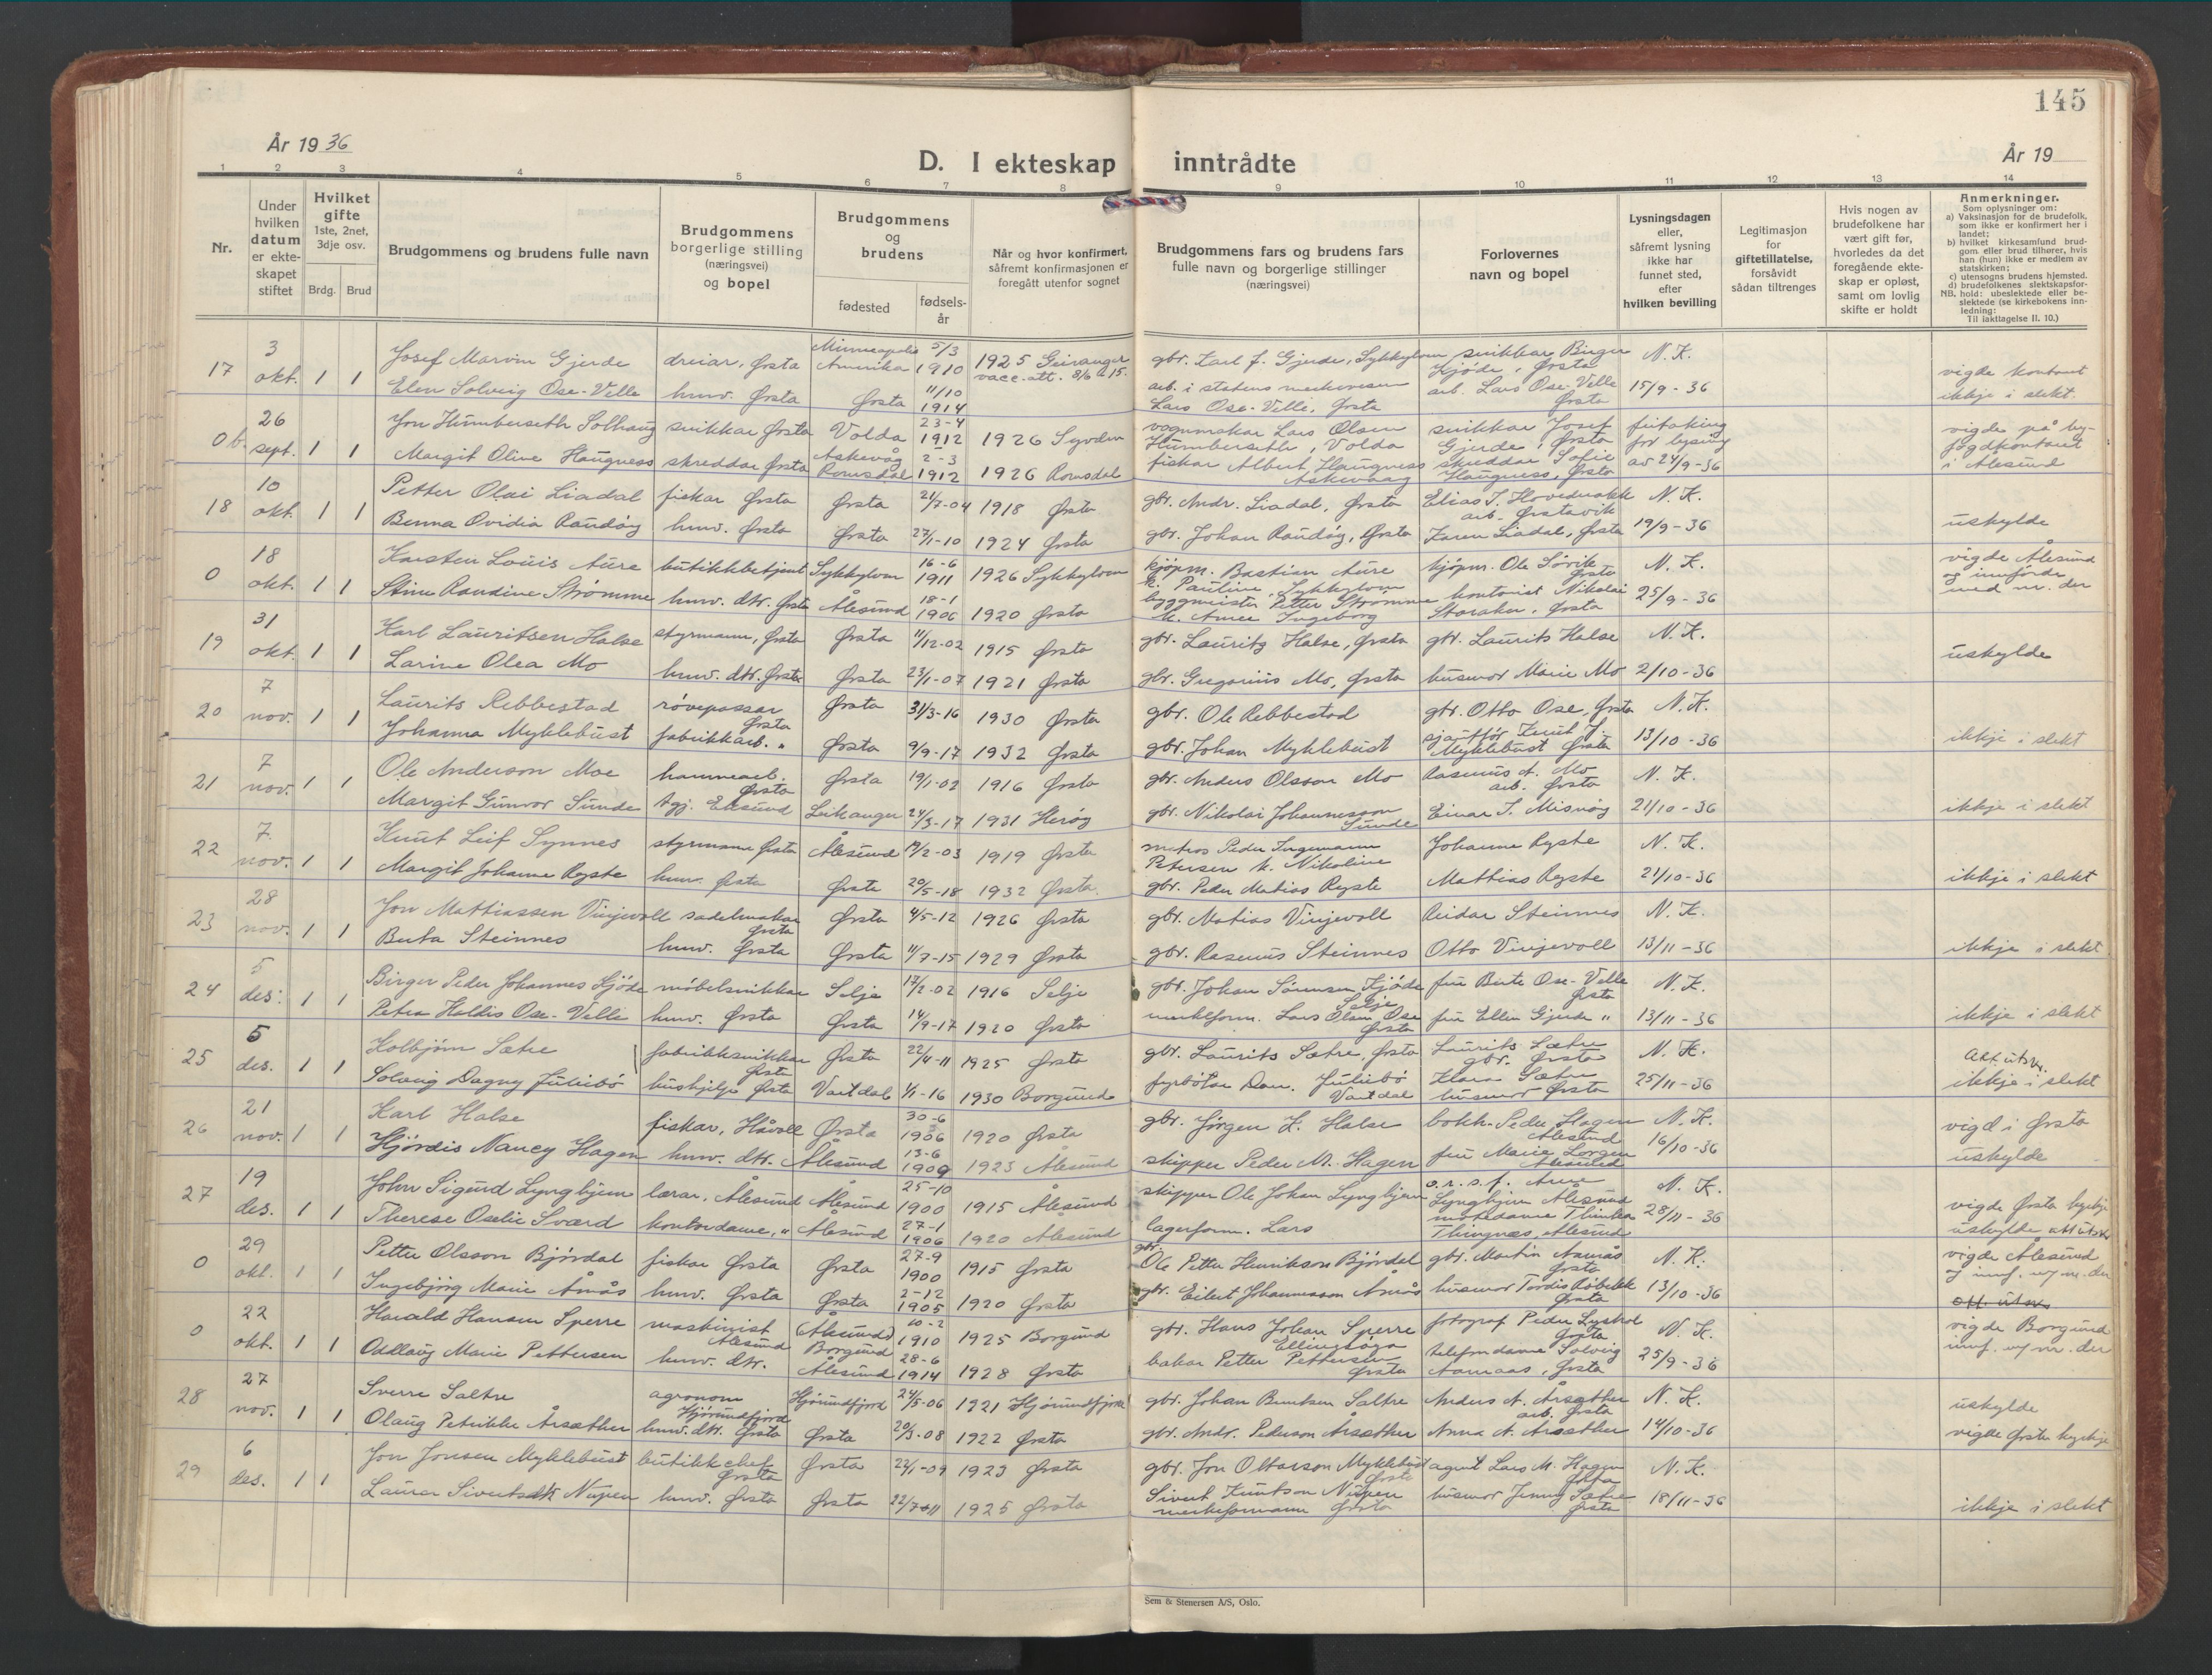 145
År 1936
D. I ekteskap inntrådte
År 19
1 2 3 4 5 6 7 8 9 10 11 12 13 14
Nr.
Under hvilken datum er ekteskapet stiftet
Hvilket gifte 1ste, 2net, 3dje osv.
Brdg. Brud
Brudgommens og brudens fulle navn
Brudgommens borgerlige stilling (næringsvei) og bopel
Brudgommens og brudens
fødested
fødselsår
Når og hvor konfirmert, såfremt konfirmasjonen er foregått utenfor sognet
Brudgommens fars og brudens fars fulle navn og borgerlige stillinger (næringsvei)
Forlovernes navn og bopel
Lysningsdagen eller, såfremt lysning ikke har funnet sted, efter hvilken bevilling
Legitimasjon for giftetillatelse, forsåvidt sådan tiltrenges
Hvis nogen av brudefolkene har vært gift før, hvorledes da det foregående ekteskap er opløst, samt om lovlig skifte er holdt
Anmerkninger.
Som oplysninger om:
a) Vaksinasjon for de brudefolk, som ikke er konfirmert her i landet;
b) hvilket kirkesamfund brudgom eller brud tilhører, hvis han (hun) ikke er medlem av statskirken;
c) utensogns brudens hjemsted.
d) brudefolkenes slektskapsforhold: ubeslektede eller beslektede (se kirkebokens innledning:
NB. Til iakttagelse II. 10.)
17 3 okt. 1 1 Josef Marvin Gjerde dreiar, Ørsta Minneapolis Amerika 5/3 1910 1925 Geiranger vacc. att. 8/6 15. gbr. Karl J. Gjerde, Sykkylven snikkar Birger Kjøde, Ørsta N.K.
Elen Solveig Ose-Velle husv. Ørsta Ørsta 11/10 1914 arb. i statens Lars Ose-Velle, Ørsta arb. Lars Ose-Velle Ørsta 15/9-36 vigde kontant ikkje i slekt.
0b. 26 sept. 1 1 Jon Humberseth Solhaug snikkar Ørsta Volda 23-4 1912 1926 Syvden vognmakar Lars Olsen Humberseth, Volda snikkar Josef Gjerde, Ørsta fritaking for lysing
Margit Oline Haugness skreddar Ørsta Askevåg Romsdal 2-3 1912 1926 Romsdal fiskar Albert Haugness Askevaag skreddar Sofie Haugness, Ørsta av 24/9-36 vigde på byfogdkontoret i Ålesund
18 10 okt. 1 1 Petter Olai Liadal fiskar Ørsta Ørsta 21/7-04 1918 Ørsta gbr. Andr. Liadal, Ørsta Elias T. Hovdenakk arb. Ørstavik N.K.
Benna Ovidia Raudøy husv. Ørsta Ørsta 27/1-10 1924 Ørsta gbr. Johan Raudøy, Ørsta Karen Liadal, Ørsta 19/9-36 uskylde
0 18 okt. 1 1 Karsten Louis Aure butikkbetjent Sykkylven 16-6 1911 1926 Sykkylven kjøpm. Bastian Aure k. Pauline, Sykkylven kjøpm. Ole Sørvik Ørsta N.K.
Stine Raudine Strømme husv. dtr. Ørsta Ålesund 18-1 1906 1920 Ørsta byggmeister Petter Strømme k. Anne Ingeborg kontorist Nikolai Storaker, Ørsta 25/9-36 vigde Ålesund og innførde med nr. der
19 31 okt. 1 1 Karl Lauritsen Halse styrmann, Ørsta Ørsta 11/12-02 1915 Ørsta gbr. Lauritz Halse, Ørsta gbr. Laurits Halse N.K.
Larine Olea Mo husv. dtr. Ørsta Ørsta 23/1-07 1921 Ørsta gbr. Gregorius Mo, Ørsta husmor Marie Mo 2/10-36 uskylde
20 7 nov. 1 1 Laurits Rebbestad røvepassar Ørsta Ørsta 31/3-16 1930 Ørsta gbr. Ole Rebbestad gbr. Otto Ose, Ørsta N.K.
Johanna Myklebust fabrikkarb. " Ørsta 9/9-17 1932 Ørsta gbr. Johan Myklebust sjauffør Knut J. Myklebust Ørsta 13/10-36 ikkje i slekt
21 7 nov. 1 1 Ole Anderson Moe Ørsta Ørsta 19/1-02 1916 Ørsta gbr. Anders Olsson Mo Rasmus A. Mo arb. Ørsta N.K.
Margit Gunvor Sunde tgj. Ålesund Leikanger 24/3-17 1931 Herøy gbr. Nikolai Johannesson Sunde Einar T. Misnøy 21/10-36 ikkje i slekt
22 7. nov. 1 1 Knut Leif Synnes styrmann Ørsta Ålesund 19/2-03 1919 Ørsta matros Peder Ingemann Petersen k. Nikoline Johanne Ryste N.K.
Margit Johanne Ryste husv. Ørsta Ørsta 20/5-18 1932 Ørsta. gbr. Peder Matias Ryste Mathias Ryste 21/10-36 ikkje i slekt
23 28 nov. 1 1 Jon Mattiassen Vinjevoll sadelmakar Ørsta Ørsta 4/5-12 1926 Ørsta gbr. Matias Vinjevoll Reidar Steinnes N.K.
Berta Steinnes husv. Ørsta Ørsta 11/7-15 1929 Ørsta gbr. Rasmus Steinnes Otto Vinjevoll 13/11-36 ikkje i slekt
24 5 des. 1 1 Birger Peder Johannes Kjøde møbelsnikkar Selje 17/2-02 1916 Selje gbr. Johan Sørensen Kjøde Selje fru Berte Ose-Velle Ørsta N.K.
Petra Haldis Ose-Velle husv. Ørsta Ørsta 14/9-17 1920 Ørsta Lars Olsen Ose Ørsta fru Ellen Gjerde " 13/11-36 ikkje i slekt
25 5 des. 1 1 Kolbjørn Sætre fabrikksnikkar Ørsta Ørsta 22/4-11 1925 Ørsta gbr. Laurits Sætre, Ørsta Laurits Sætre gbr. Ørsta N.K.
Solveig Dagny Juliebø hushjelp Ørsta Vartdal 1/1-16 1930 Borgund fyrbøtar Dan. Juliebø Vartdal Klara Sætre husmor Ørsta 25/11-36 att.utskr. ikkje i slekt
26 21 nov. 1 1 Karl Halse fiskar, Håvoll Ørsta 30-6 1906 1920 Ørsta gbr. Jørgen K. Halse bokh. Peder Hagen Ålesund N.K. vigd i Ørsta
Hjørdis Nancy Hagen husv. dtr. Ålesund 13-6 1909 1923 Ålesund skipper Peder M. Hagen fru Marie Lorgen Ålesund 16/10-36 uskylde
27 19 des. 1 1 John Sigurd Lyngbjem lærar, Ålesund Ålesund 25-10 1900 1915 Ålesund skipper Ole Johan Lyngbjem o.r.s.f. Arne Lyngbjem Ålesund N.K.
Therese Oselie Sværd kontordame, " Ålesund 27-1 1906 1920 Ålesund lagerform. Lars motedame Thinka Thingnæs, Ålesund 28/11-36 vigde Ørsta kyrkje uskylde att utskr
0 29 okt. 1 1 Petter Olsson Bjørdal fiskar Ørsta Ørsta 27-9 1900 1915 Ørsta gbr. Ole Petter Henrikson Bjørdal gbr. Martin Aamås Ørsta N.K.
Ingebjørg Marie Åmås husv. Ørsta Ørsta 2-12 1905 1920 Ørsta gbr. Eilert Johannesson Åmås husmor Tordis Røbekk Ørsta 13/10-36 vigde Ålesund og innf. u/nr. der
0 22 okt. 1 1 Harald Hansen Sperre maskinist Ålesund (Ålesund) Borgund 10-2 1910 1925 Borgund gbr. Hans Johan Sperre Ellingsøya fotograf Peder Lystøl Ørsta N.K.
Oddlaug Marie Pettersen husv. dtr. Ålesund 28-6 1914 1928 Ørsta bakar Petter Pettersen Ørsta telefondame Solveig Aamaas, Ørsta 25/9-36 vigde Borgund innf. u/nr. der
28 27 nov. 1 1 Sverre Saltre agronom Hjørundfjord Hjørundfjord 24/5-06 1921 Hjørundfjord gbr. Johan Berntsen Saltre Anders A. Årsæther arb. Ørsta N.K. uskylde
Olaug Petrikke Årsæther husv. dtr. Ørsta Ørsta 20/3-08 1922 Ørsta gbr. Andr. Pederson Årsæther Anna A. Årsæther 14/10-36 vigde Ørsta kyrkje
29 6 des. 1 1 Jon Jonsen Myklebust butikkchef Ørsta Ørsta 22/1-09 1923 Ørsta gbr. Jon Oltarson Myklebust Ørsta agent Lars M. Hagen Ørsta N.K.
Laura Sivertsdtr Nupen husv. Ørsta Ørsta 22/7-11 1925 Ørsta Sivert Knutson Nupen Ørsta husmor Jenny Sætre Ørsta 18/11-36 ikkje i slekt
Sem & Stenersen A/S, Oslo.